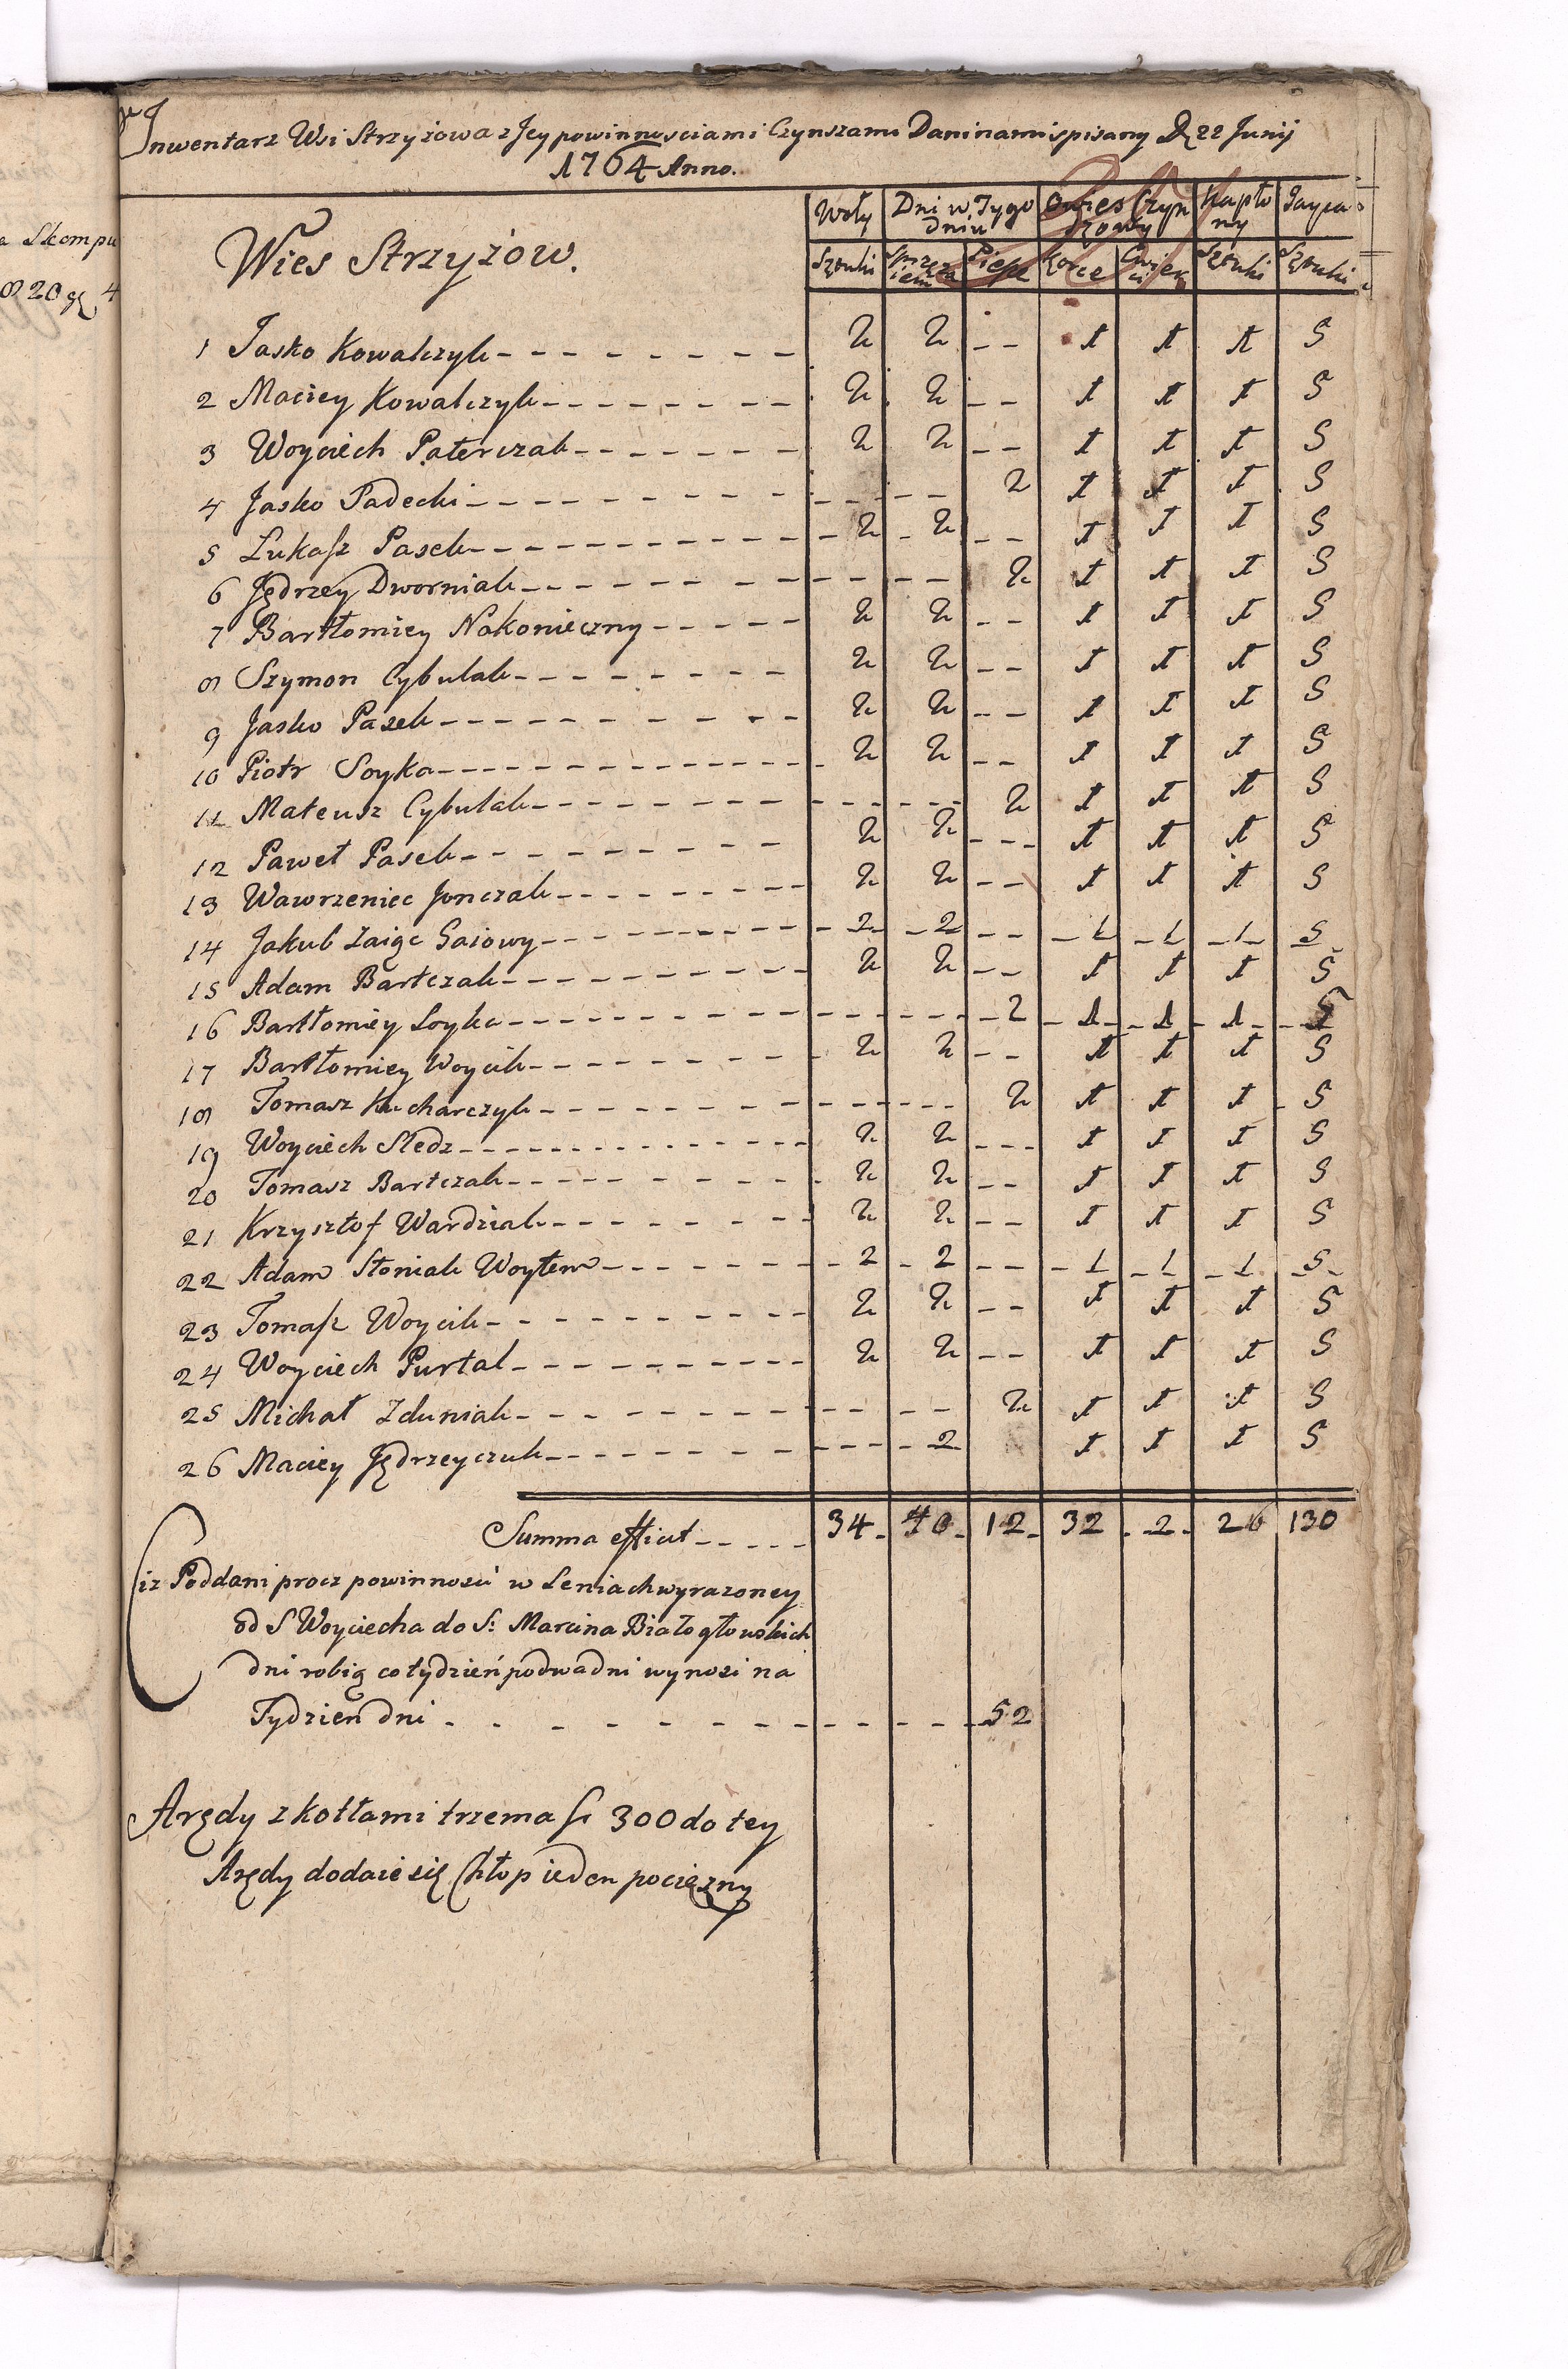 Inwentarz Wsi Strzyżowa z Jey powinnosciami Czynszami Daninami spisany D. 22 Junij
1764 Anno.
a Skompu
20 4
Wies Strzyżow.
Woły Dni w Tygo dniu Owies Czyn szowy Kapło ny Jayca
Sztuki Sprzęża iem Piesze Korce Cwierci Sztuki Sztuki
1 Jasko Kowalczyk 2 2 -- 1 1 1 5
2 Maciey Kowalczyk 2 2 -- 1 1 1 5
3 Woyciech Paterczak 2 2 -- 1 1 1 5
4 Jasko Padecki -- -- 2 1 1 1 5
5 Lukasz Pasek 2 2 -- 1 1 1 5
6 Jędrzey Dworniak -- -- 2 1 1 1 5
7 Bartłomiey Nakonieczny 2 2 -- 1 1 1 5
8 Szymon Cybulak 2 2 -- 1 1 1 5
9 Jasko Pasek 2 2 -- 1 1 1 5
10 Piotr Soyka 2 2 -- 1 1 1 5
11 Mateusz Cybulak -- -- 2 1 1 1 5
12 Paweł Pasek 2 2 -- 1 1 1 5
13 Wawrzeniec Jonczak 2 2 -- 1 1 1 5
14 Jakub Zaiąc Gaiowy 2 2 -- 1 1 1 5
15 Adam Bartczak 2 2 -- 1 1 1 5
16 Bartłomiey Soyka -- -- 2 1 1 1 5
17 Bartłomiey Woycik 2 2 -- 1 1 1 5
18 Tomasz Kucharczyk -- -- 2 1 1 1 5
19 Woyciech Sledz 2 2 -- 1 1 1 5
20 Tomasz Bartczak 2 2 -- 1 1 1 5
21 Krzysztof Wardziak 2 2 -- 1 1 1 5
22 Adam Słoniak Woytem 2 2 -- 1 1 1 5
23 Tomasz Woycik 2 2 -- 1 1 1 5
24 Woyciech Purtal 2 2 -- 1 1 1 5
25 Michał Zduniak -- -- 2 1 1 1 5
26 Maciey Jędrzeyczuk -- 2 1 1 1 5
Summa efficit 34 40 12 32 2 26 130
iz Poddani procz powinnosci w Leniach wyrazoney
od S Woyciecha do S: Marcina Białogłowskich
dni robią co tydzień po dwa dni wynosi na
Tydzień dni 52
Arędy z kotłami trzema 300 do tey
Arędy dodaie się Chłop ieden pocięzny